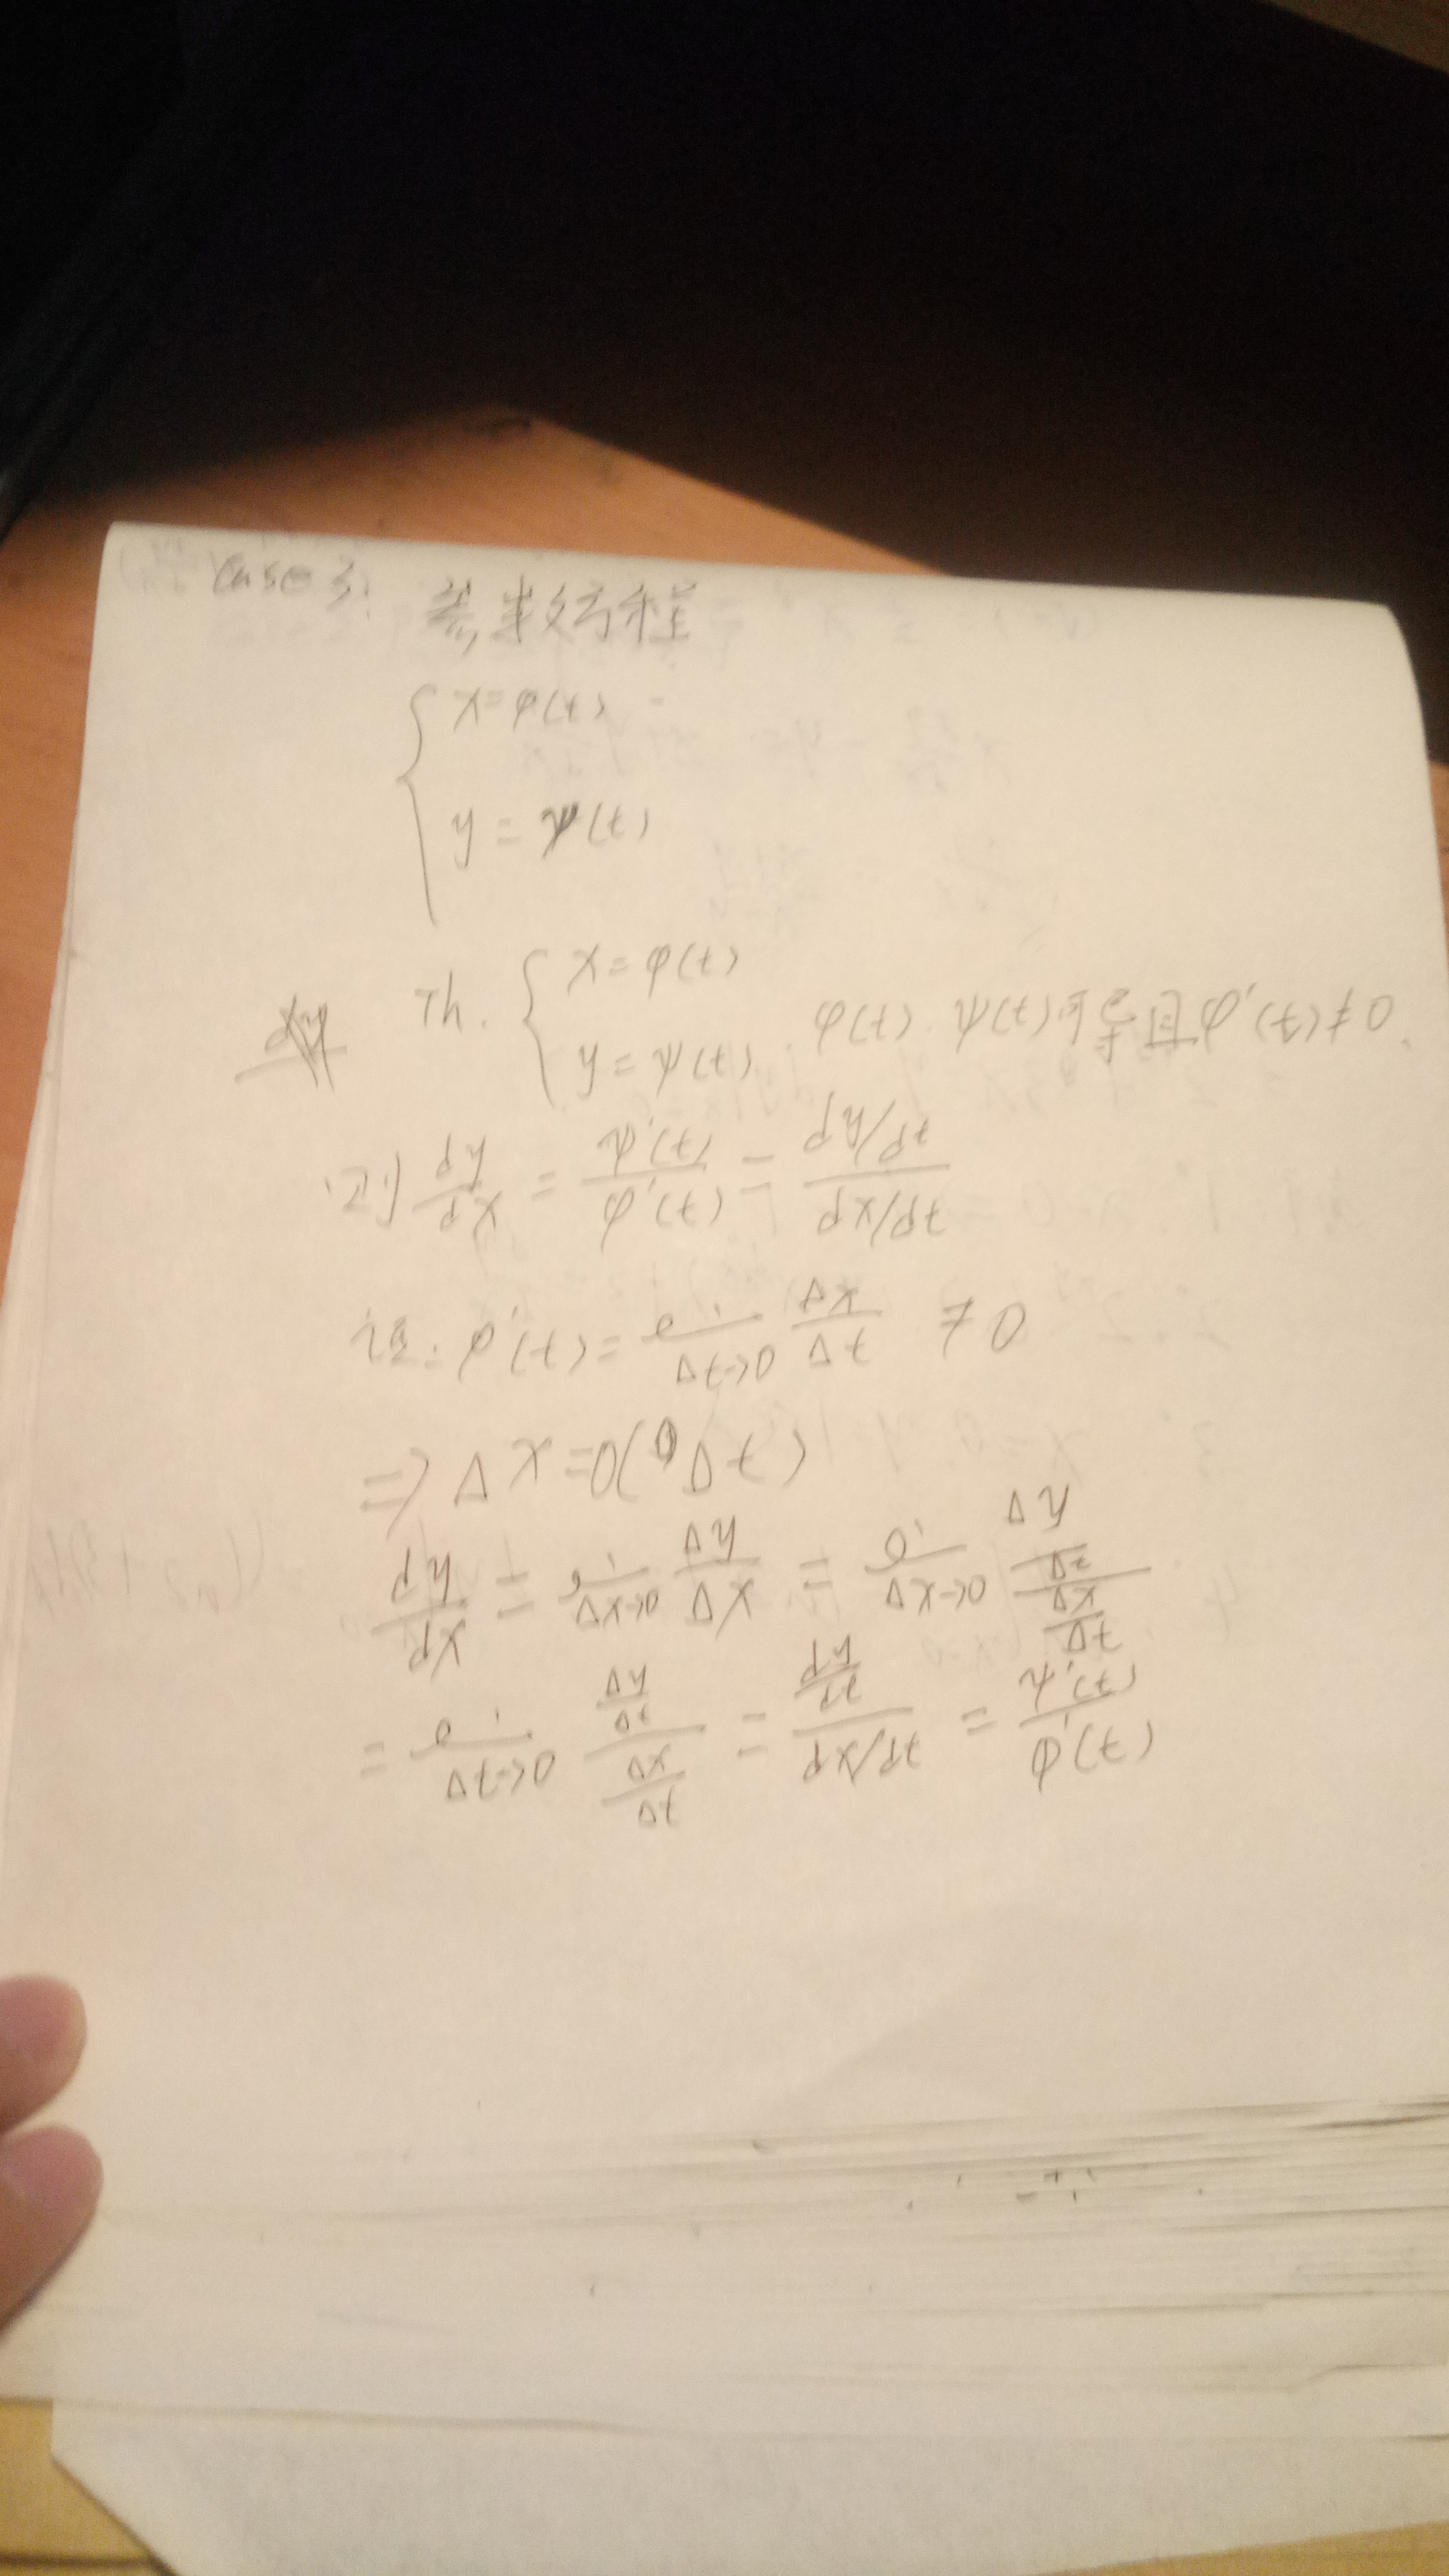 Case 3: 参数方程
{ x=φ(t)
y=ψ(t)
Th. { x=φ(t)
y=ψ(t). φ(t). ψ(t)可导且φ'(t)≠0.
则 dy/dx = ψ'(t)/φ'(t) = (dy/dt)/(dx/dt)
证: φ'(t)= li Δt→0 Δx/Δt ≠0
⇒ Δx=O(Δt)
dy/dx = li Δx→0 Δy/Δx = li Δx→0 (Δy/Δt)/(Δx/Δt)
= li Δt→0 (Δy/Δt)/(Δx/Δt) = (dy/dt)/(dx/dt) = ψ'(t)/φ'(t)